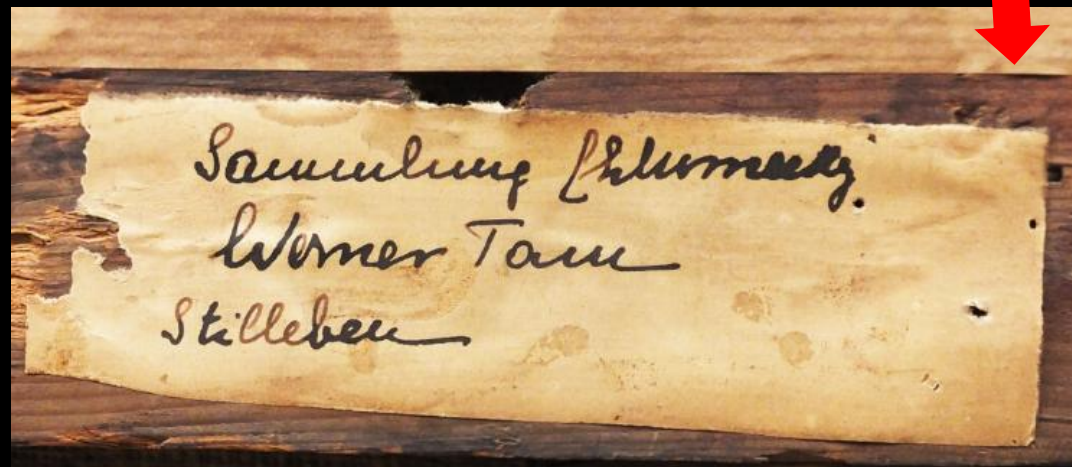 Sammlung Chlumecky
Werner Tam
Stilleben